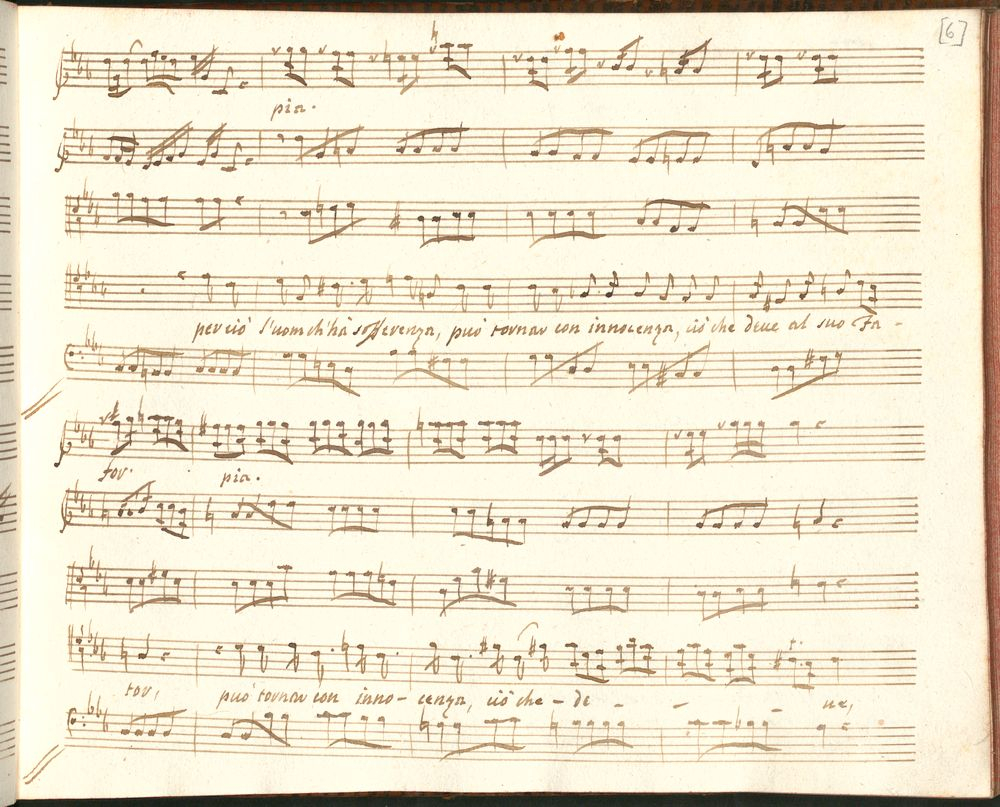 [6]
pia.
perciò l'uom ch'hà sofferenza, può tornar con innocenza, ciò che deve al suo Fa-
for. pia.
tor, può tornar con inno- cenza, ciò che - de - - - ue,